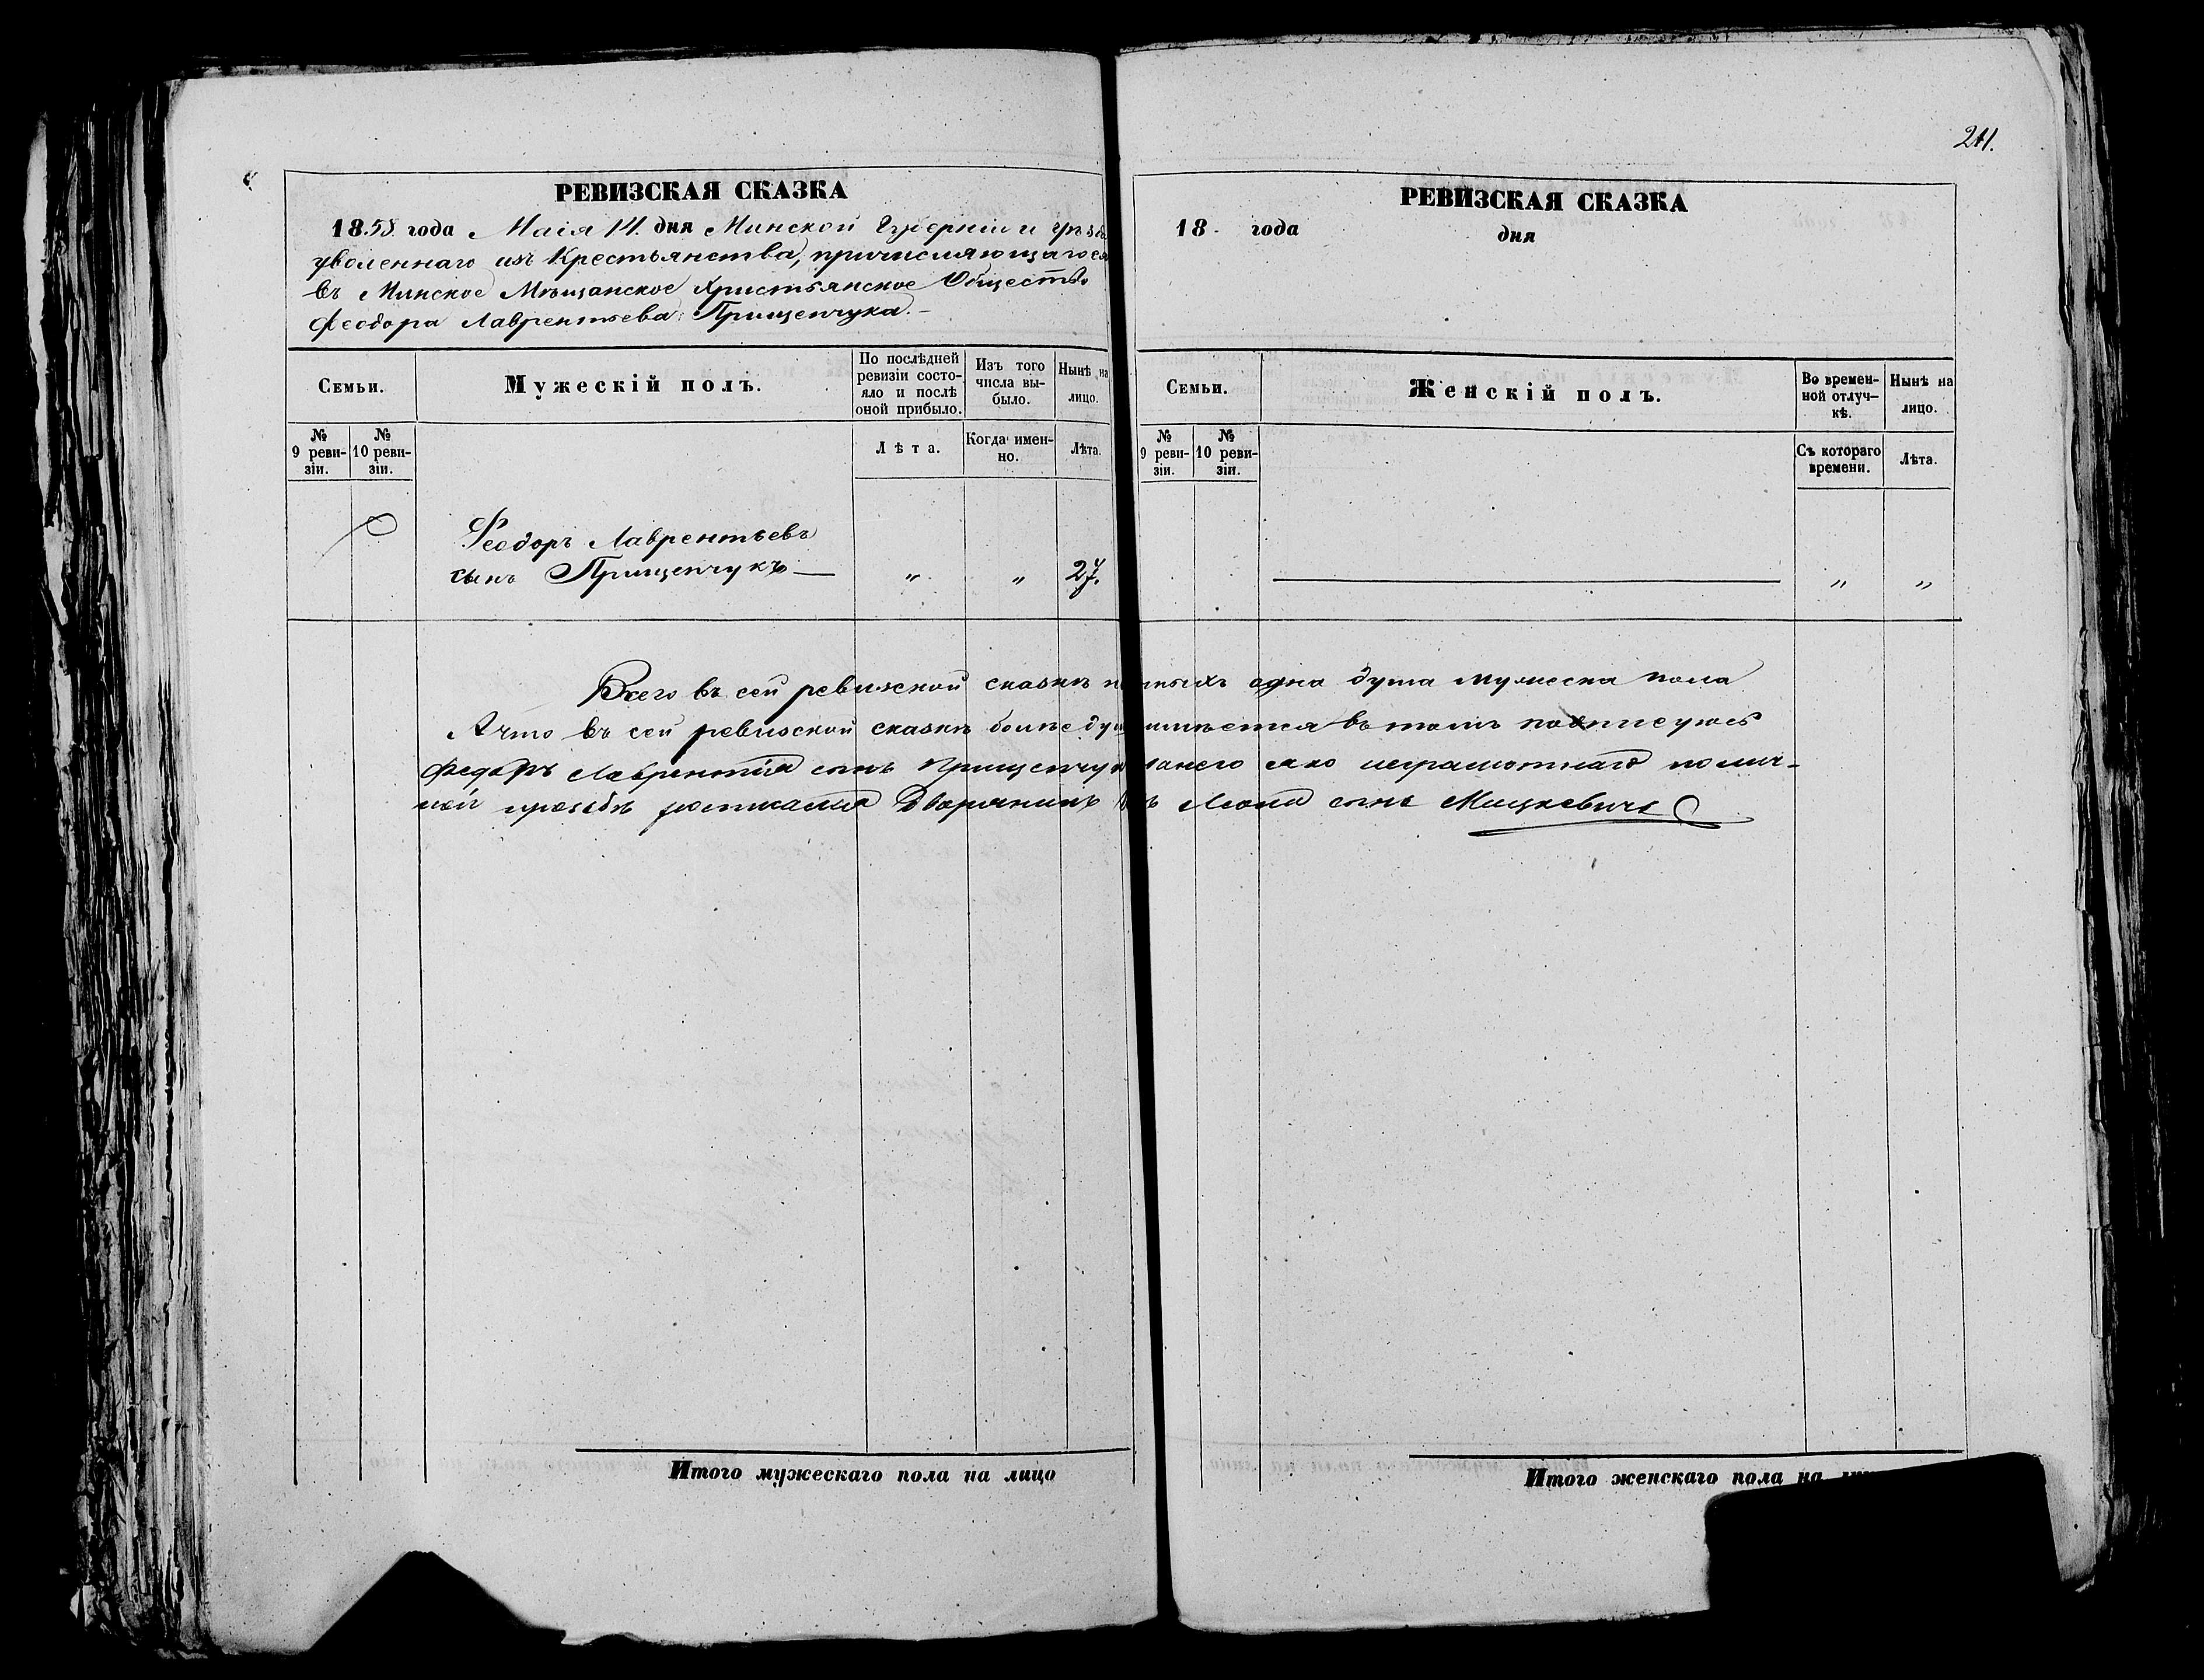 241.
РЕВИЗСКАЯ СКАЗКА
1858 года Маія 14 дня Минской Губерніи и
уволеннаго изъ Крестьянства, причисляющагося
въ Минское Мѣщанское Христьянское Общество
Феодора Лаврентьева Прищепчука.
Семьи.
Мужескій полъ.
По послѣдней ревизіи состояло и послѣ оной прибыло.
Изъ того числа выбыло.
Нынѣ на лицо.
№ 9 ревизіи.
№ 10 ревизіи.
Лѣта.
Когда именно.
Лѣта.
Феодоръ Лаврентьевъ
сынъ Прищепчукъ — „ „ 27.
РЕВИЗСКАЯ СКАЗКА
18 года
дня
Семьи.
Женскій полъ.
Во временной отлучкѣ.
Нынѣ на лицо.
№ 9 ревизіи.
№ 10 ревизіи.
Съ котораго времени.
Лѣта.
„ „
Всего въ сей ревизской сказкѣ одна душа мужеска пола
А что въ сей ревизской сказкѣ въ томъ подписуюсь
Федоръ Лаврентія сынъ неграмотнаго по лич-
ной прозьбѣ росписался Дворянинъ сынъ Мицкевичъ
Итого мужескаго пола на лицо
Итого женскаго пола на